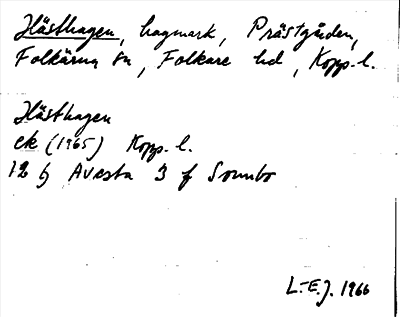 Hästhagen, hagmark, Prästgården,
Folkärna sn, Folkare hd, Kopp. l.
Hästhagen
ek (1965) Kopp. l.
12 G Avesta 3 f Sonnbo
L.-E.J. 1966